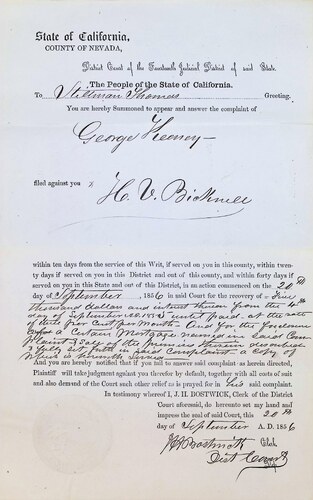 State of California,
COUNTY OF NEVADA,
District Court of the Fourteenth Judicial District of said State.
The People of the State of California.
To Stillman Thomas Greeting.
You are hereby Summoned to appear and answer the complaint of
George Hensey
filed against you &
H. V. Bicknell
within ten days from the service of this Writ, if served on you in this county, within twen-
ty days if served on you in this District and out of this county, and within forty days if
served on you in this State and out of this District, in an action commenced on the 20th
day of September 1856 in said Court for the recovery of
thousand dollars and interest thereon from the 4th
day of September A.D. 1855 until paid, at the rate
of three per Cent per Month. And for the foreclosure
of a Certain Mortgage named in said Com
plaint & Sale of the premises therein described
& fully set forth in said Complaint a copy of
which is herewith served
And you are hereby notified that if you do not answer said complaint as herein directed,
Plaintiff will take judgment against you therefor by default, together with all costs of suit
and also demand of the Court such other relief as is prayed for in his said complaint.
In testimony whereof I, J. H. BOSTWICK, Clerk of the District
Court aforesaid, do hereunto set my hand and
impress the seal of said Court, this 20th
day of September A. D. 1856
J H Bostwick Clerk
Dist Court